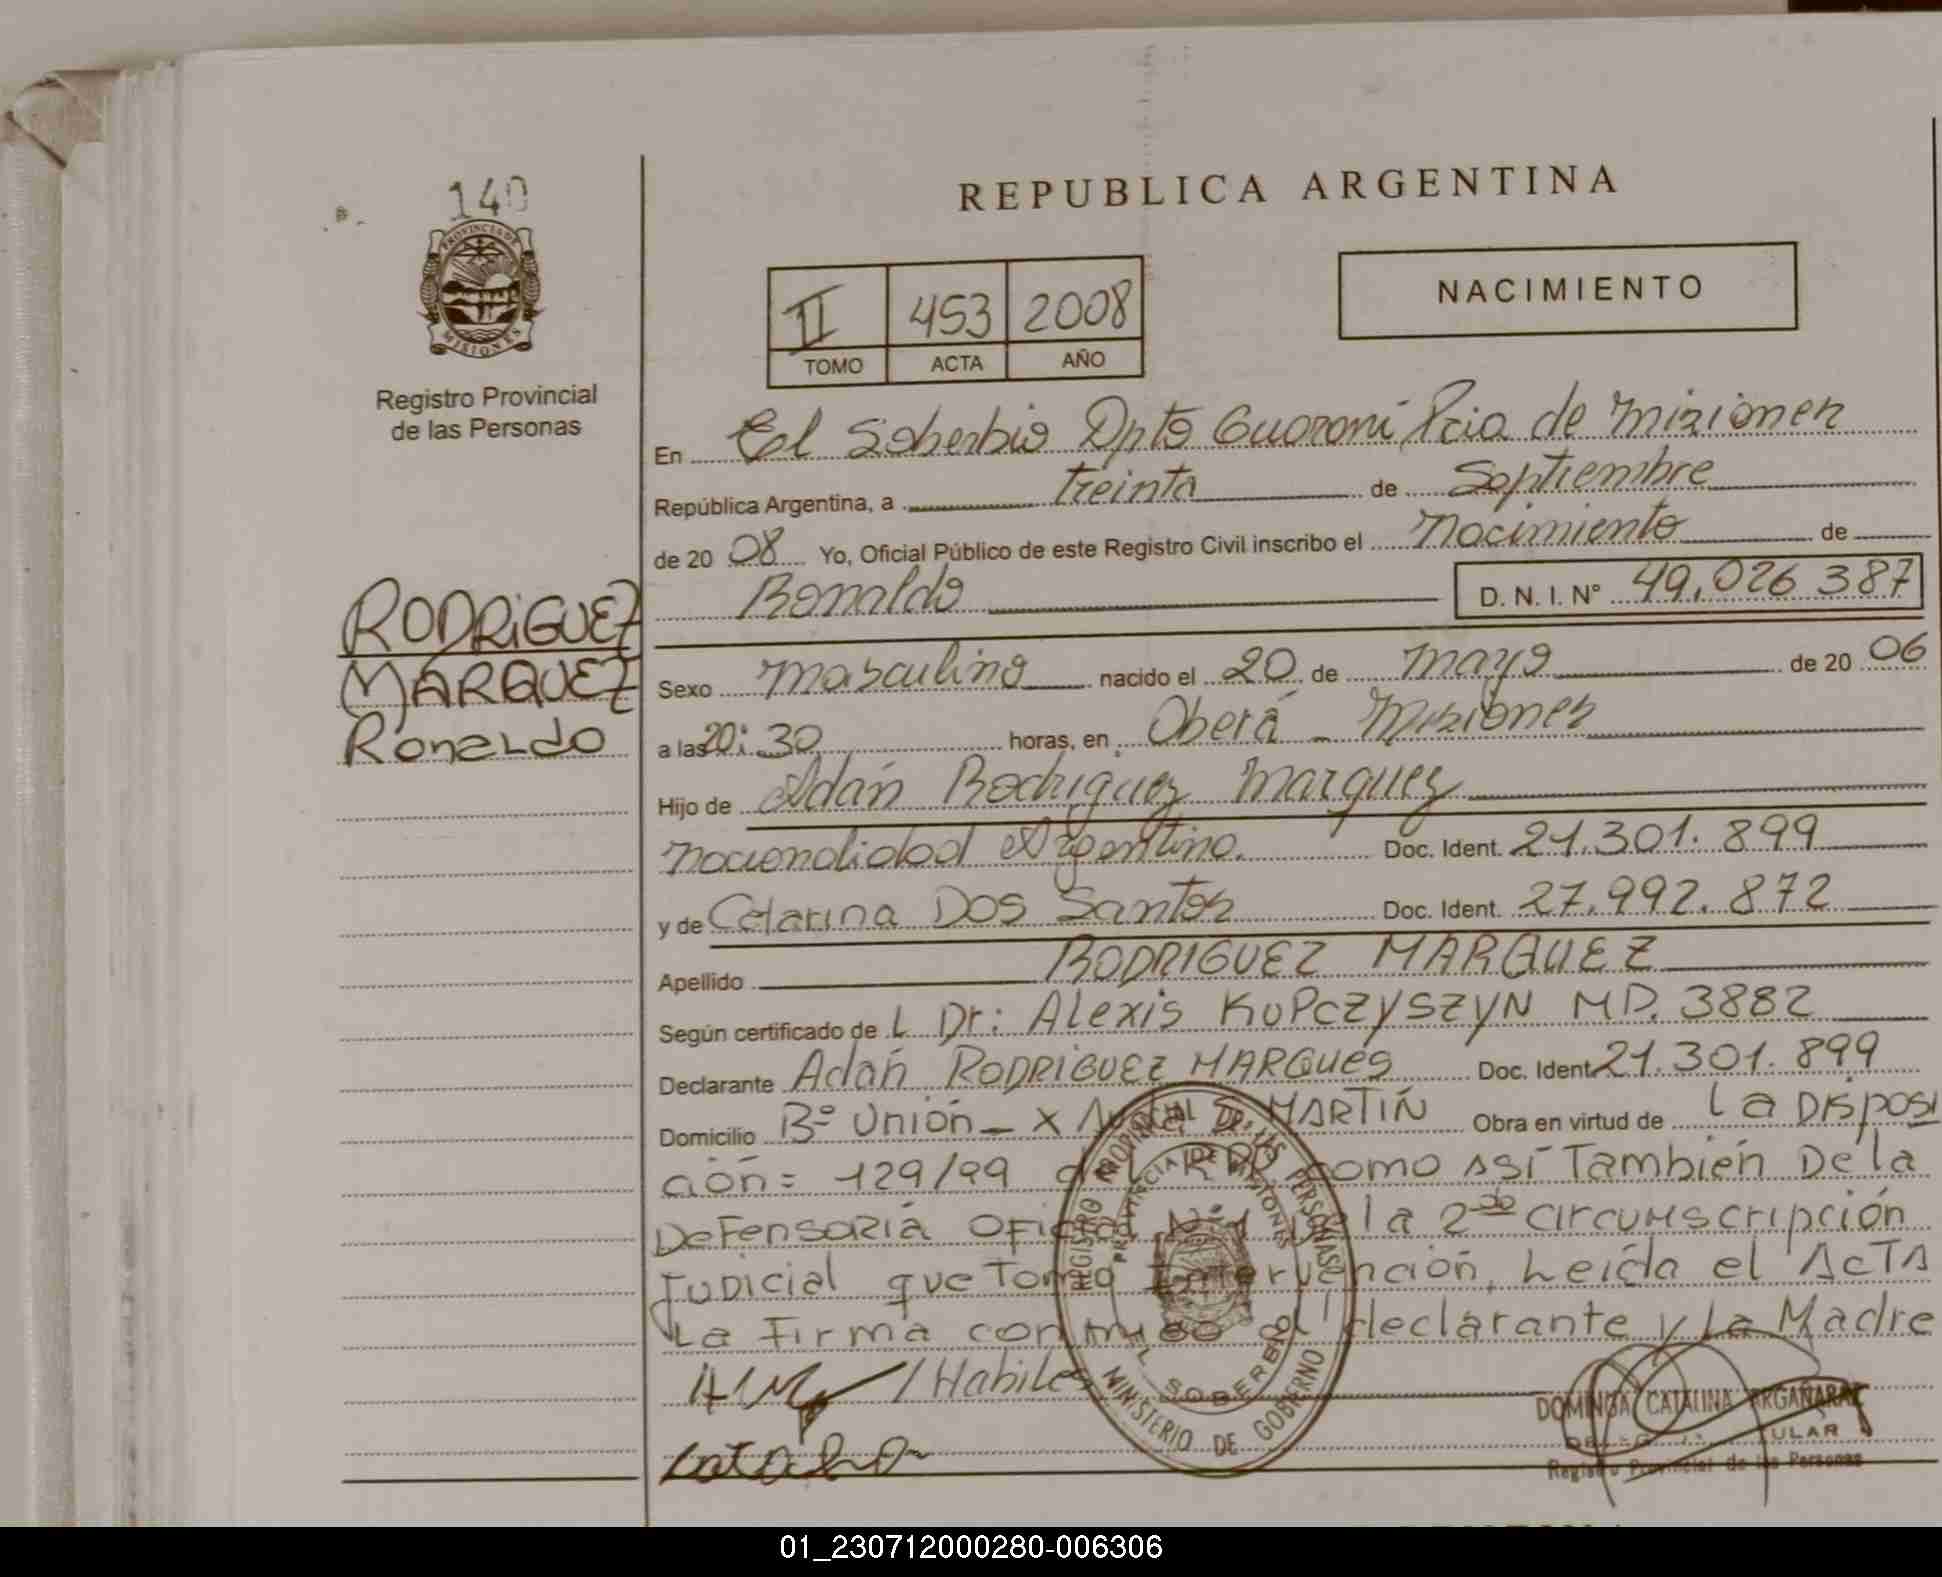 140
PROVINCIA DE
MISIONES
Registro Provincial
de las Personas
RODRIGUEZ
MARQUEZ
Ronaldo
REPUBLICA ARGENTINA
II 453 2008
TOMO ACTA AÑO
NACIMIENTO
En El Soberbio Dpto Guaraní Pcia de Misiones
República Argentina, a treinta de Septiembre
de 20 08 Yo, Oficial Público de este Registro Civil inscribo el Nacimiento de
Ronaldo D. N. I. N° 49.026 387
Sexo masculino nacido el 20 de mayo de 20 06
a las 20:30 horas, en Oberá - Misiones
Hijo de Adán Rodriguez Marquez
nacionalidad Argentino. Doc. Ident. 21.301.899
y de Catarina Dos Santos Doc. Ident. 27.992.872
Apellido RODRIGUEZ MARQUEZ
Según certificado de L Dr: Alexis KUPCZYSZYN MD. 3882
Declarante Adán RODRIGUEZ MARQUES Doc. Ident. 21.301.899
Domicilio Bº Unión - x Avda S. MARTÍN Obra en virtud de La DISPOSI
ción= 129/99 del RPP como assí También De la
DeFensoría Oficial Nº1 de la 2da circunscripción
Judicial que Tomó Intervención, Leída el ACTA
La Firma conmigo el declarante y La Madre
/Habiles
REGISTRO PROVINCIAL DE LAS PERSONAS
PROVINCIA DE MISIONES
EL SOBERBIO
MINISTERIO DE GOBIERNO
DOMINGA CATALINA ARGAÑARAZ
Registro Provincial de las Personas
01_230712000280-006306